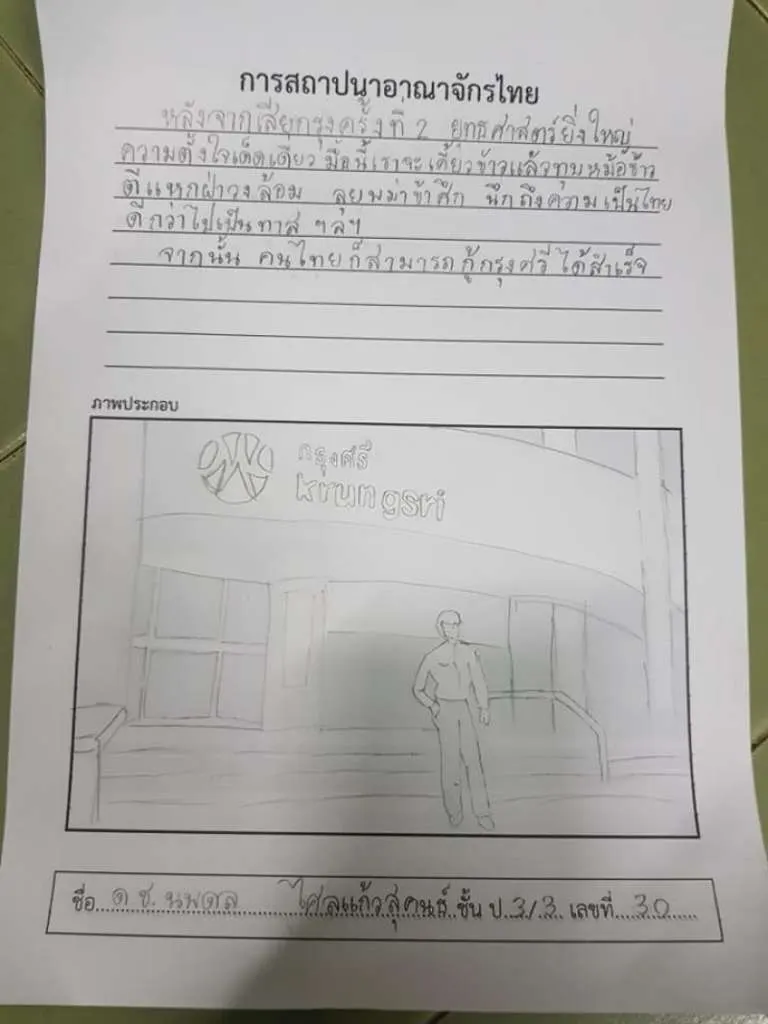 การสถาปนาอาณาจักรไทย
หลังจากเสียกรุงครั้งที่ 2 ยุทธศาสตร์ยิ่งใหญ่
ความตั้งใจเด็ดเดี่ยว มื้อนี้เราจะเคี้ยวข้าวแล้วทุบหม้อข้าว
ตีแหกฝ่าวงล้อม ลุยพม่าข้าศึก นึกถึงความเป็นไทย
ดีกว่าไปเป็นทาส ฯลฯ
จากนั้น คนไทยก็สามารถกู้กรุงศรีได้สำเร็จ
ภาพประกอบ
กรุงศรี
krungsri
ชื่อ ด.ช. นพดล ไศลแก้วสุคนธ์ ชั้น ป.3/3 เลขที่ 30